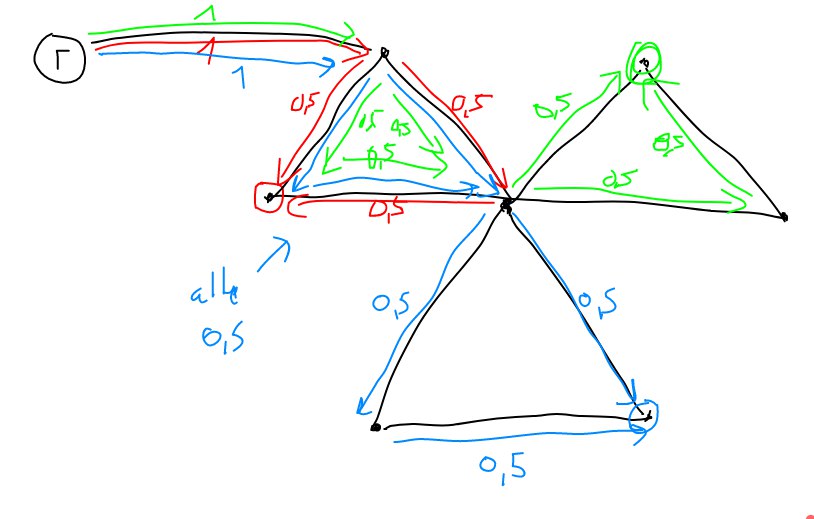 1
1
1
r
0,5
0,5
0,5
0,5
0,5
0,5
0,5
0,5
0,5
alle
0,5
0,5
0,5
0,5